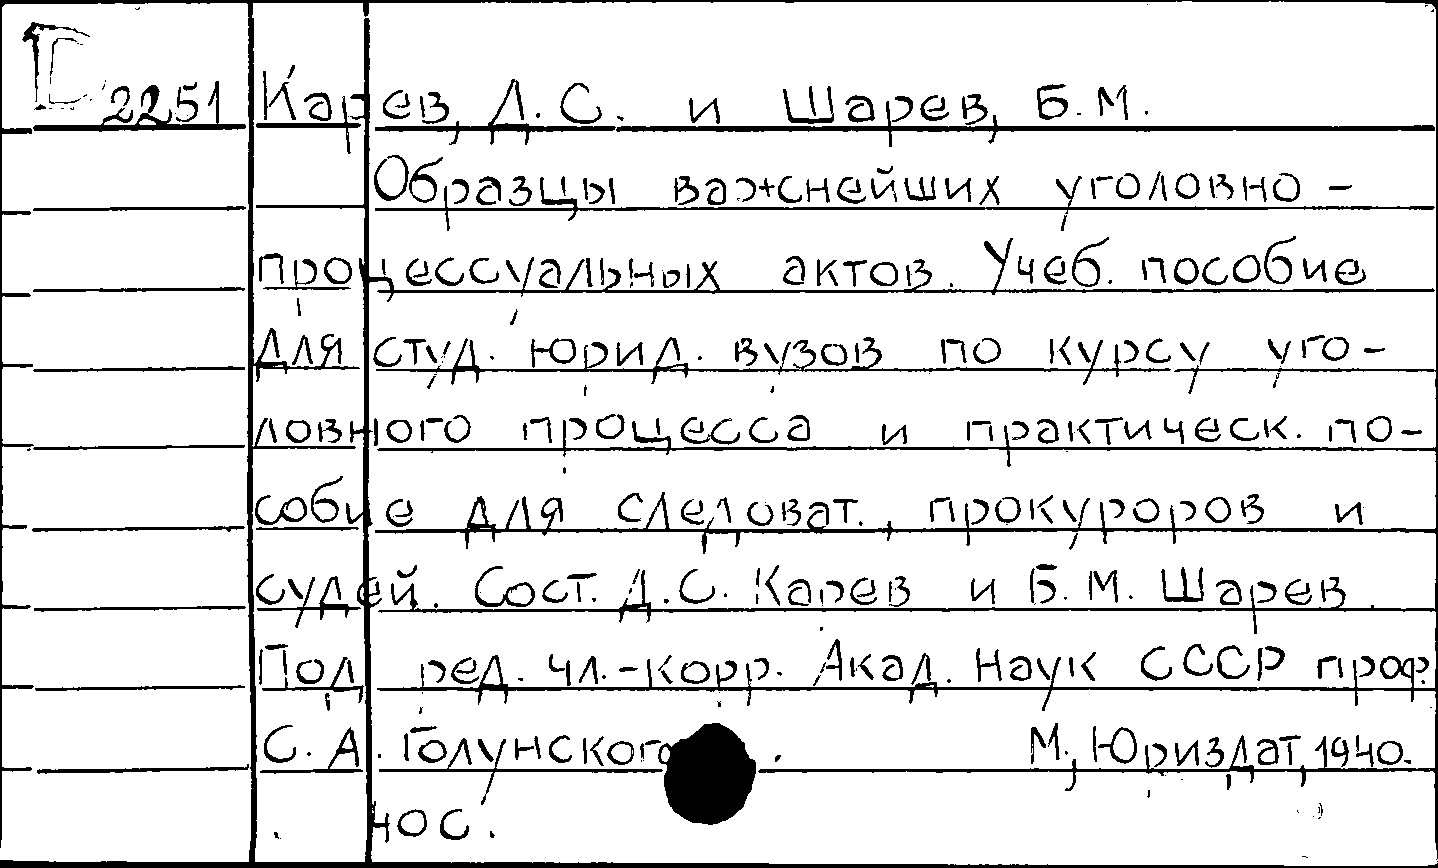 D 2251 Карев, Д.С. и Шарев, Б.М.
Образцы важнейших уголовно-
процессуальных актов. Учеб. пособие
для студ. юрид. вузов по курсу уго-
ловного процесса и практическ. по-
собие для следоват., прокуроров и
судей. Сост. Д.С. Карев и Б.М. Шарев.
Под ред. чл.-корр. Акад. Наук СССР проф.
С.А. Голунского. М., Юриздат, 1940.
40 с.